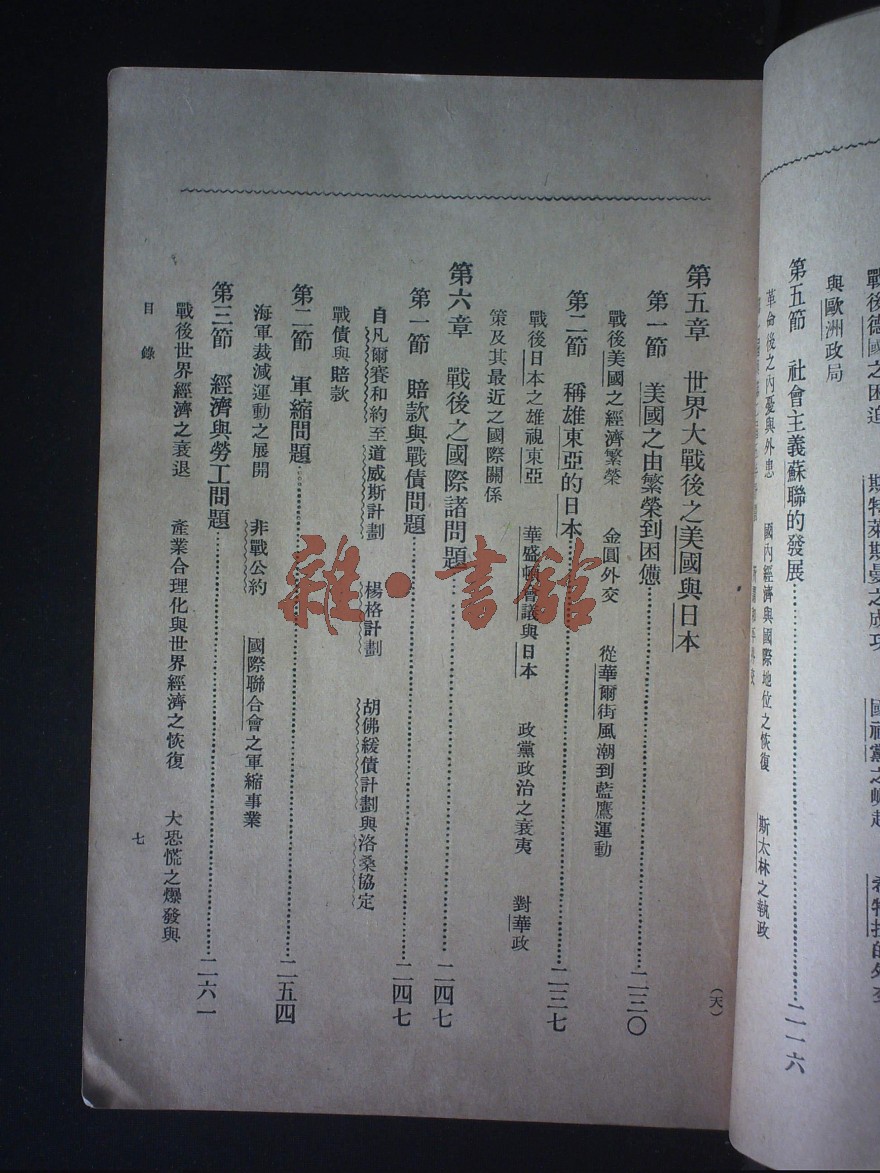 戰後德國之困迫　斯特萊斯曼之成功　國社黨之崛起　希特拉的外交
與歐洲政局
第五節　社會主義蘇聯的發展…………二一六
革命後之內憂與外患　國內經濟與國際地位之恢復　斯太林之執政
（天）
第五章　世界大戰後之美國與日本
第一節　美國之由繁榮到困憊…………二三〇
戰後美國之經濟繁榮　金圓外交　從華爾街風潮到藍鷹運動
第二節　稱雄東亞的日本…………二三七
戰後日本之雄視東亞　華盛頓會議與日本　政黨政治之衰夷　對華政
策及其最近之國際關係
第六章　戰後之國際諸問題…………二四七
第一節　賠款與戰債問題…………二四七
自凡爾賽和約至道威斯計劃　楊格計劃　胡佛緩債計劃與洛桑協定
戰債與賠款
第二節　軍縮問題…………二五四
海軍裁減運動之展開　非戰公約　國際聯合會之軍縮事業
第三節　經濟與勞工問題…………二六一
戰後世界經濟之衰退　產業合理化與世界經濟之恢復　大恐慌之爆發與
目錄
七
雜·書館